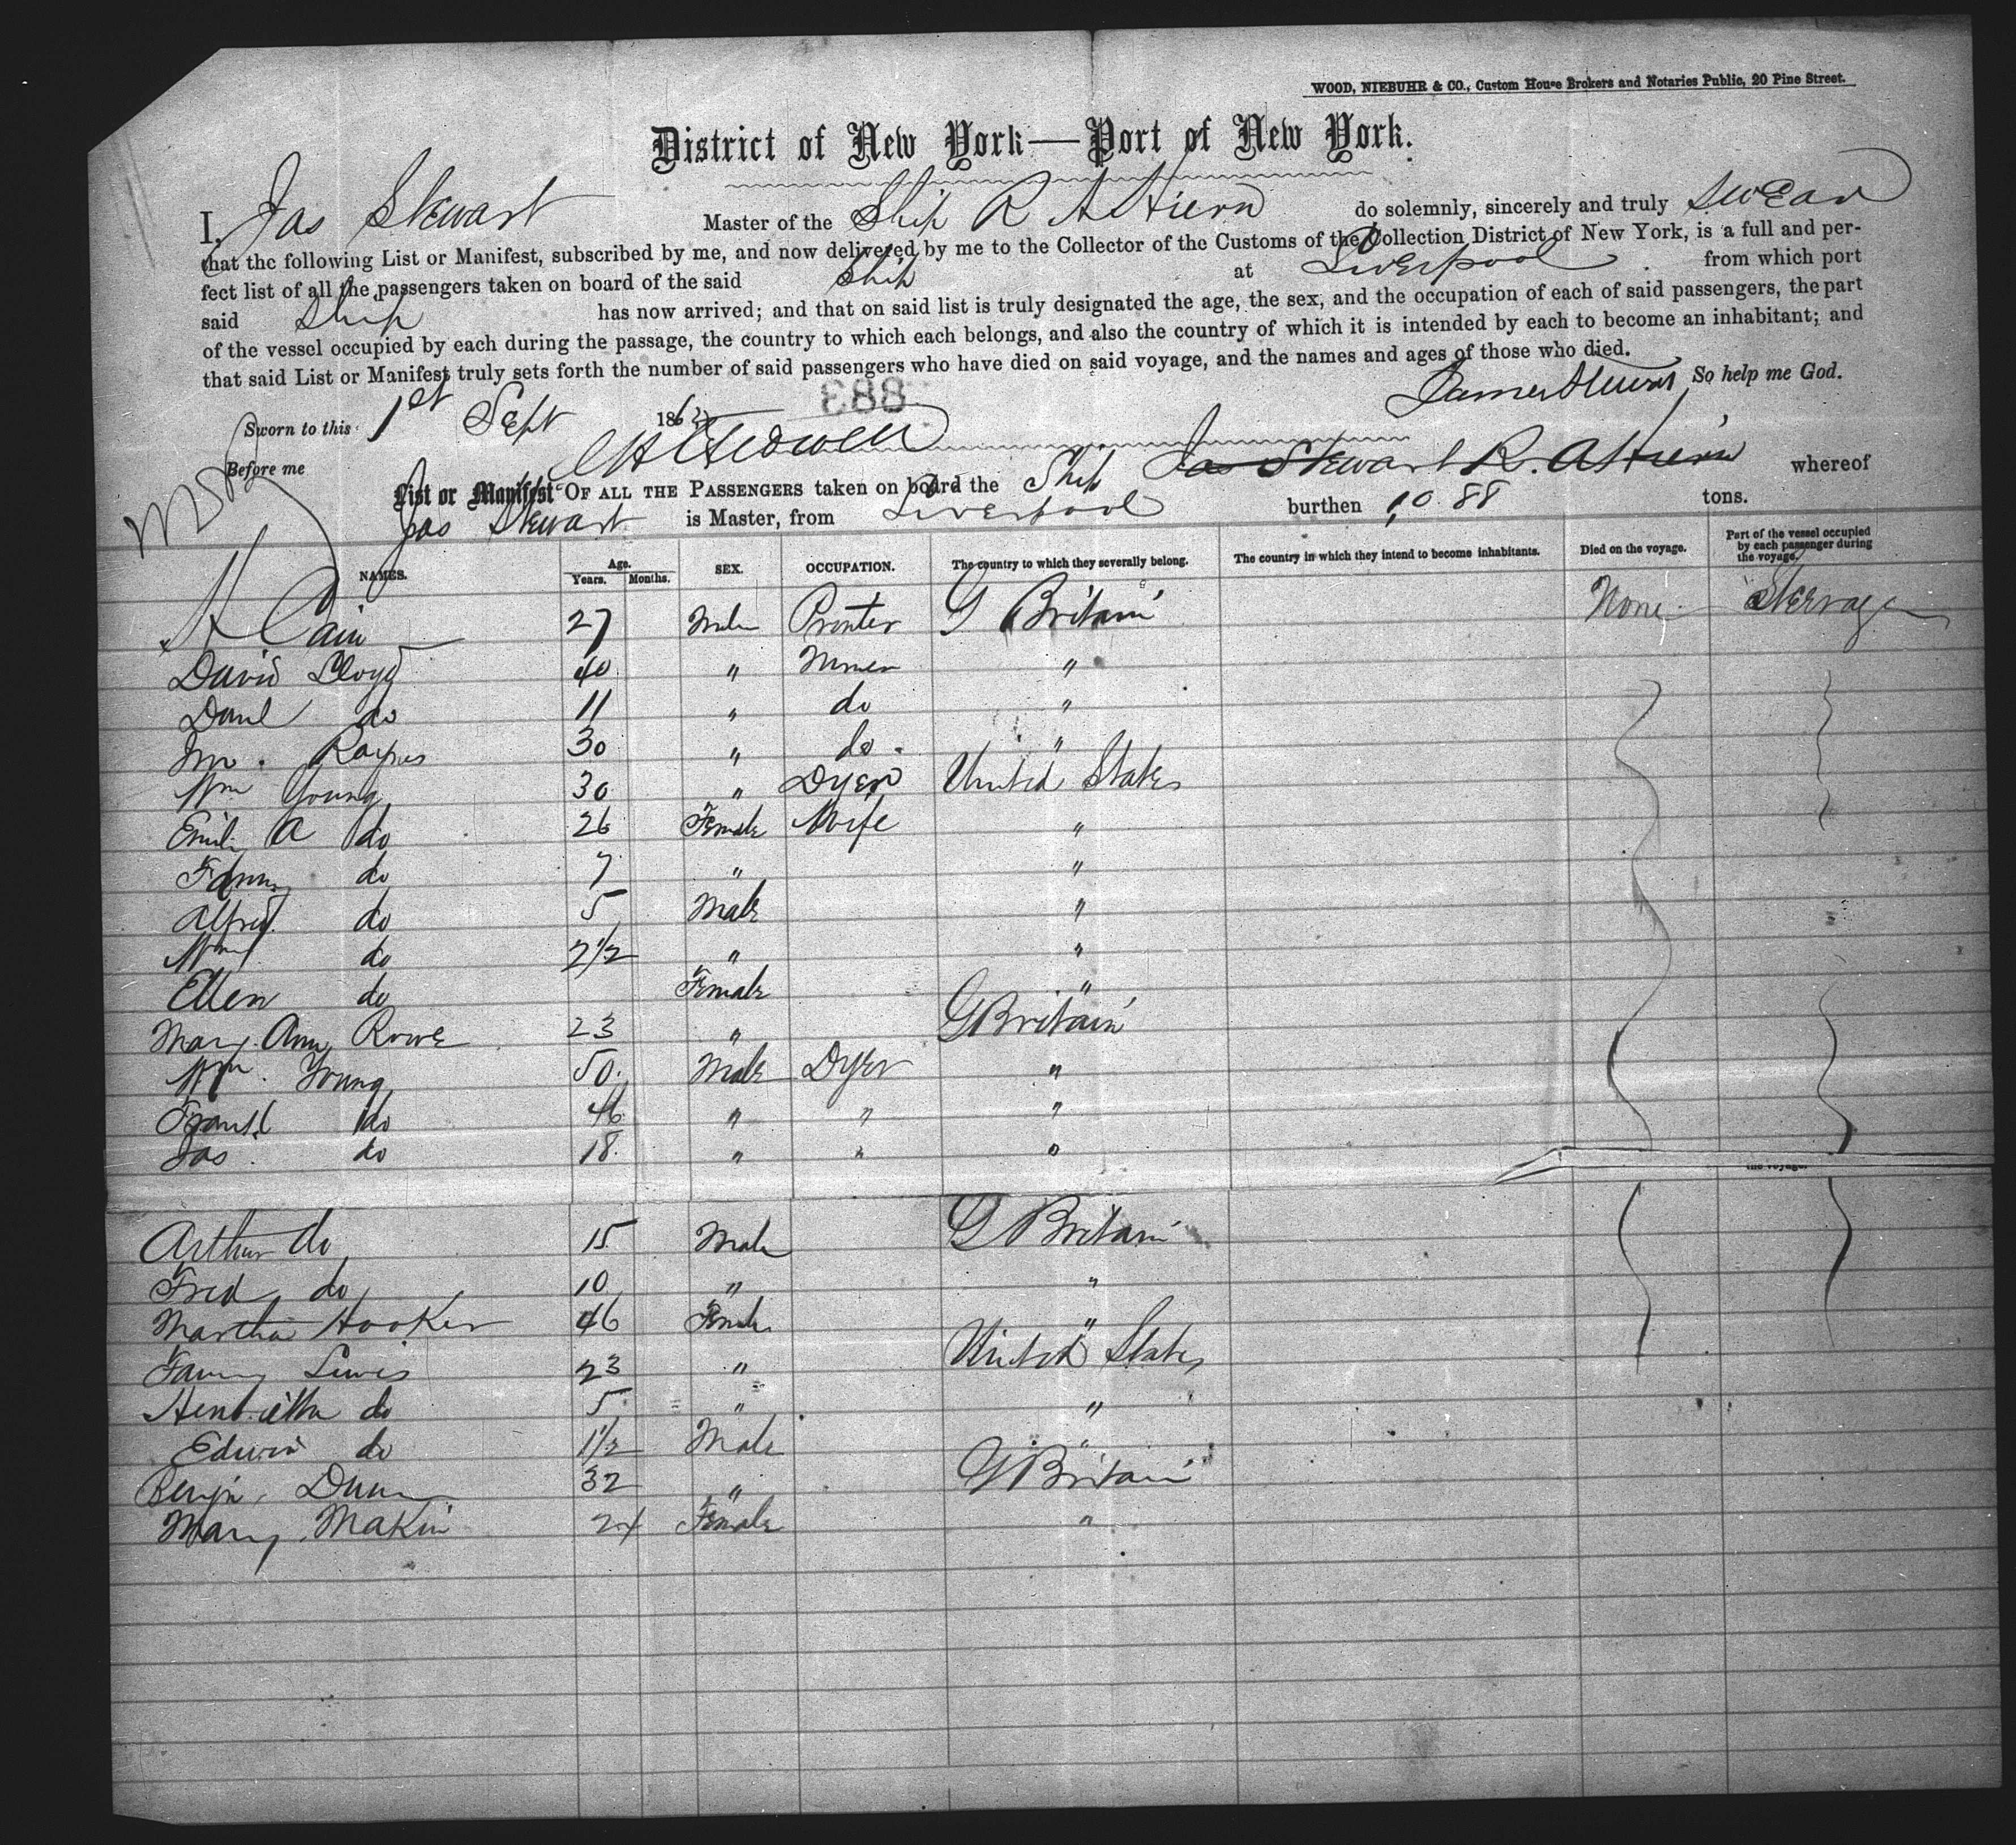 WOOD, NIEBUHR & CO., Custom House Brokers and Notaries Public, 20 Pine Street.
District of New York—Port of New York.
I, Jas Stewart Master of the Ship R A Hiern do solemnly, sincerely and truly swear
that the following List or Manifest, subscribed by me, and now delivered by me to the Collector of the Customs of the Collection District of New York, is a full and per-
fect list of all the passengers taken on board of the said Ship at Liverpool from which port
said Ship has now arrived; and that on said list is truly designated the age, the sex, and the occupation of each of said passengers, the part
of the vessel occupied by each during the passage, the country to which each belongs, and also the country of which it is intended by each to become an inhabitant; and
that said List or Manifest truly sets forth the number of said passengers who have died on said voyage, and the names and ages of those who died.
James Stewart So help me God.
883
Sworn to this 1st Sept 186
Before me
List or Manifest OF ALL THE PASSENGERS taken on board the Ship Jas Stewart R. A Hiern whereof
Jas Stewart is Master, from Liverpool burthen 1,088 tons.
NAMES. Age. Years. Months. SEX. OCCUPATION. The country to which they severally belong. The country in which they intend to become inhabitants. Died on the voyage. Part of the vessel occupied by each passenger during the voyage.
Cain 27 Male Printer G Britain None Steerage
David Lloyd 40 " Miner "
Danl do 11 " do "
Jno. Raynes 30 " do "
Wm Young 30 " Dyer United States
Emily A do 26 Female Wife "
Fanny do 7 " "
Alfred do 5 Male "
Wm do 2 1/2 " "
Ellen do Female "
Mary Ann Rowe 23 " G Britain
Wm. Young 50 Male Dyer "
do 46 " " "
Jas. do 18 " " "
the voyage.
Arthur do 15 Male G Britain
Fred do 10 " "
Martha Hooker 46 Female "
Fanny Lewis 23 " United States
Henrietta do 5 " "
Edwin do 1 1/2 Male "
Benjn. Dunn 32 " G Britain
Mary Makin 24 Female "